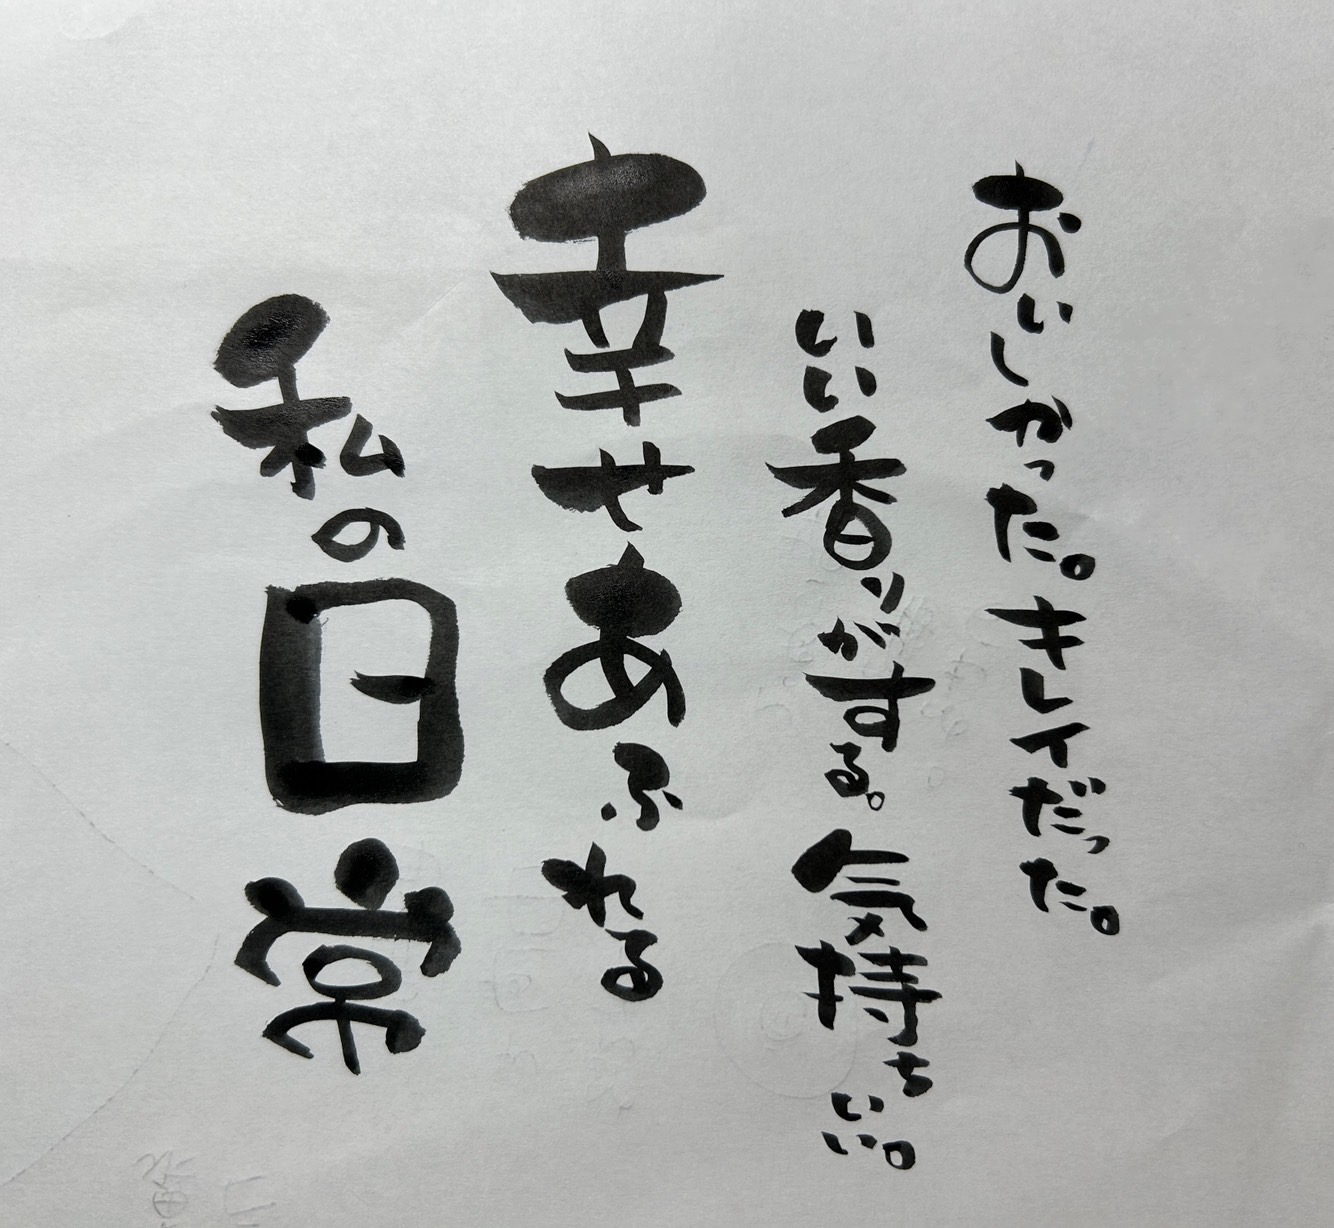 おいしかった。キレイだった。
いい香りがする。気持ちいい。
幸せあふれる
私の日常